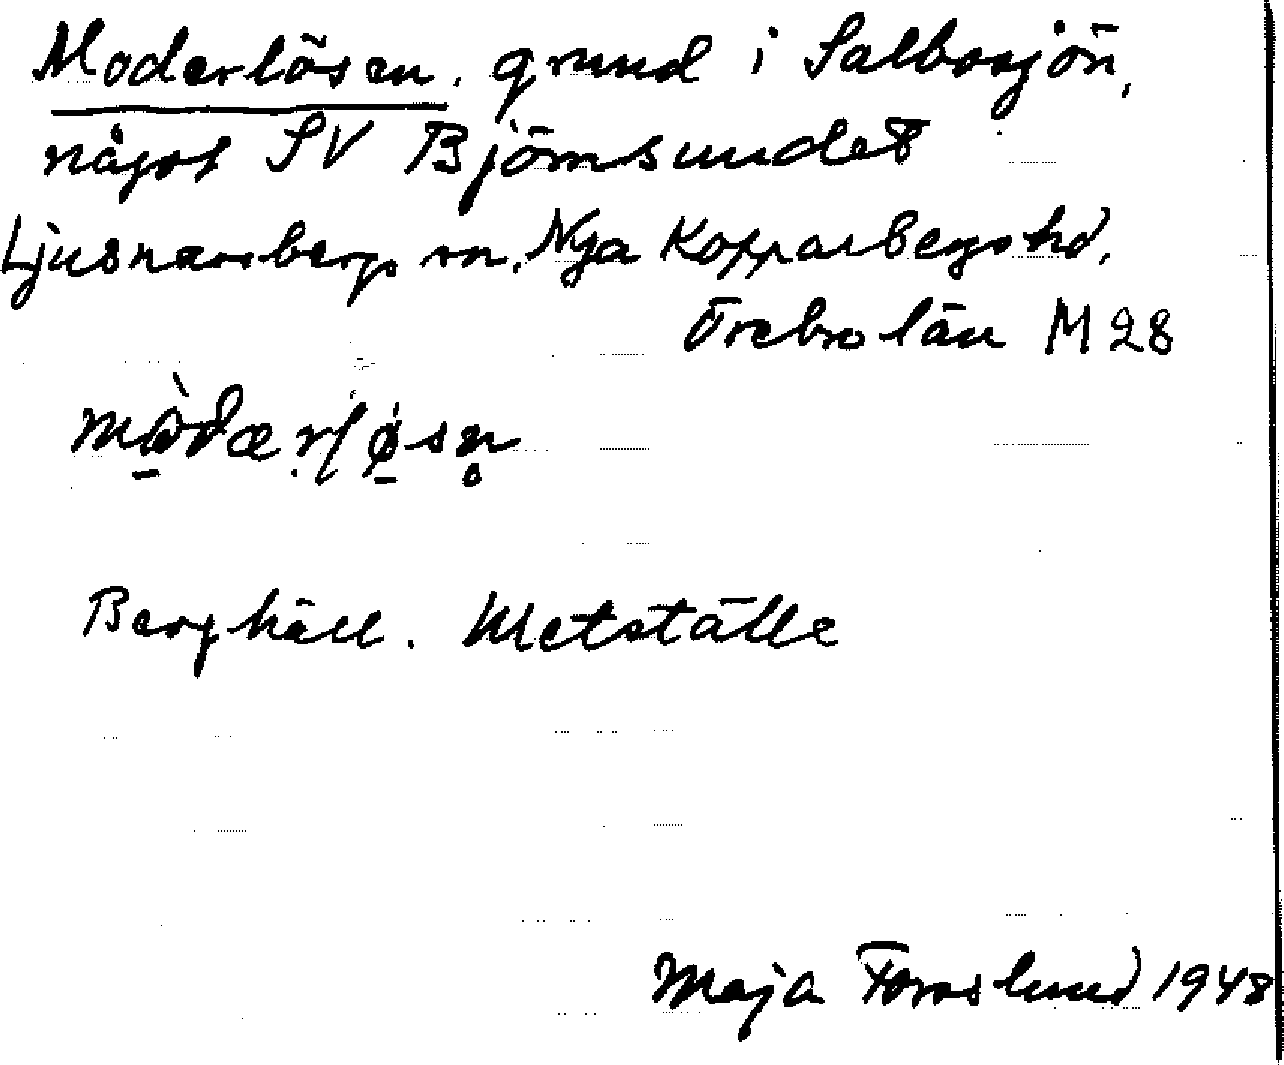 Moderlösen. grund i Salbosjön,
något SV Björnsundet
Ljusnarsbergs sn, Nya Kopparbergs hd,
Örebro län M 28
Berghäll. Metställe
Maja Forslund 1948